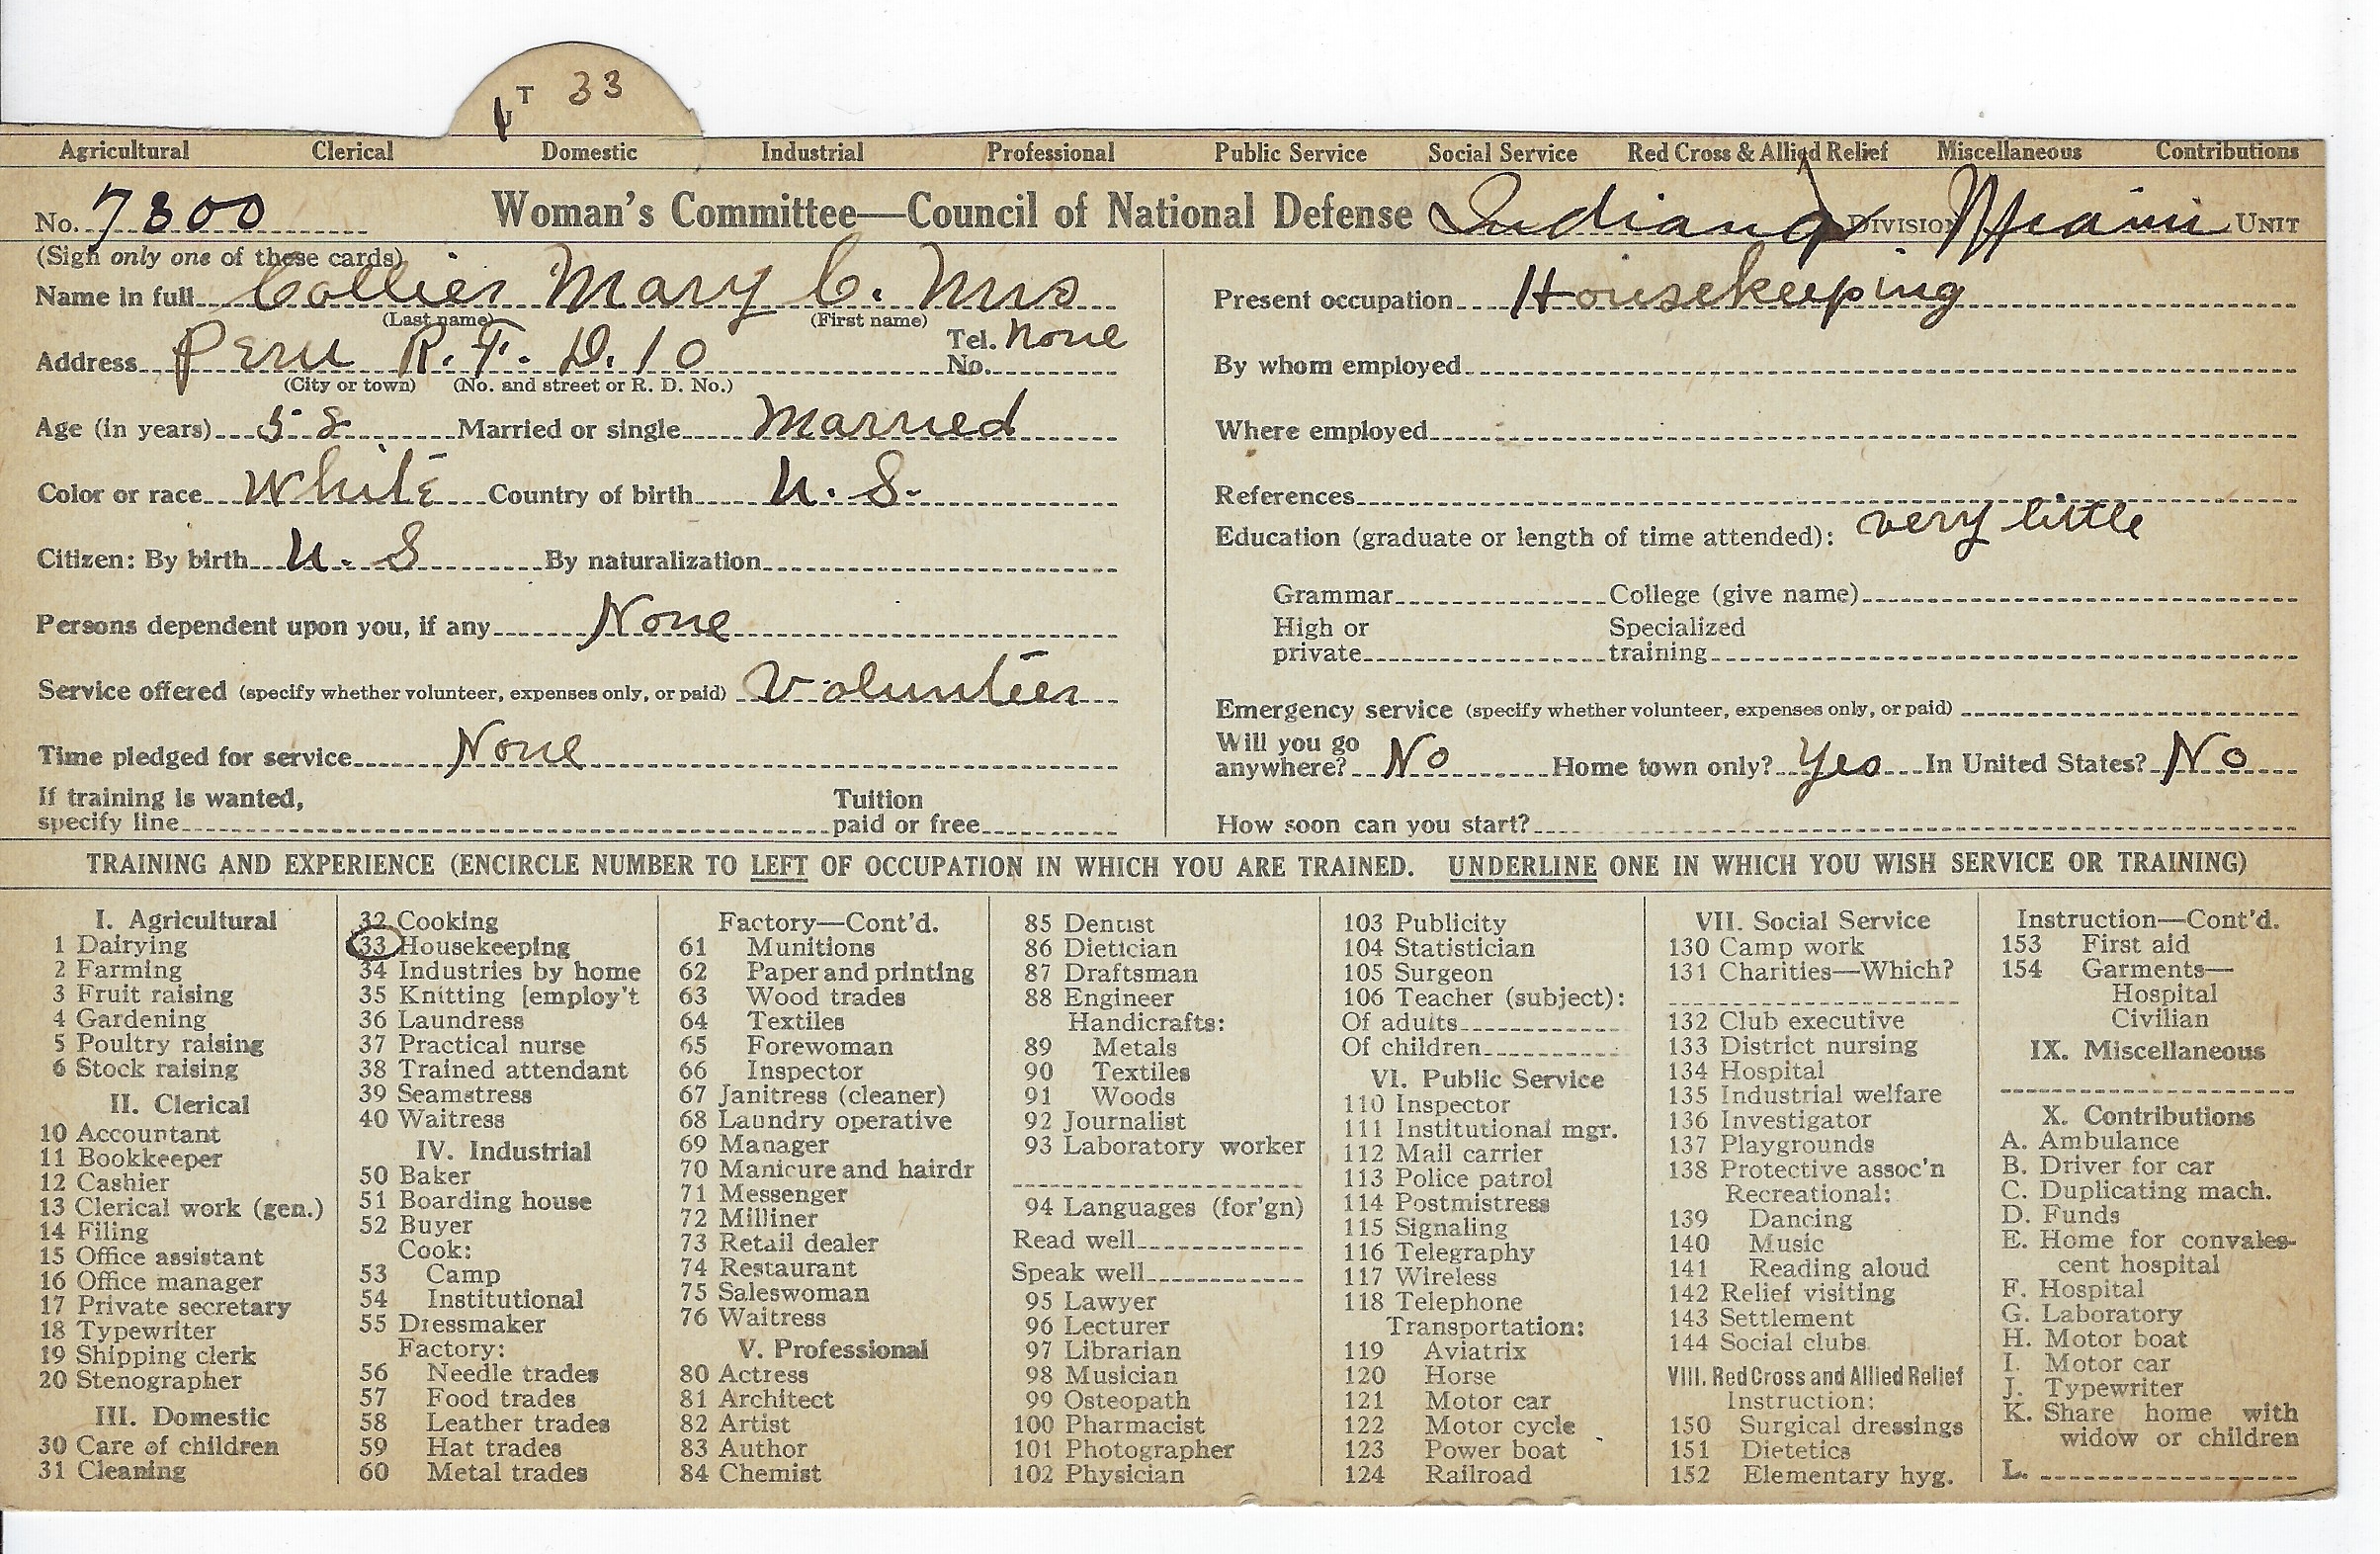 T 33
Agricultural Clerical Domestic Industrial Professional Public Service Social Service Red Cross & Allied Relief Miscellaneous Contributions
No. 7300 Woman's Committee—Council of National Defense Indiana DIVISION Miami UNIT
(Sign only one of these cards)
Name in full Collier Mary C. Mrs
(Last name) (First name)
Address Peru R. F. D. 10 Tel. No. None
(City or town) (No. and street or R. D. No.)
Age (in years) 58 Married or single Married
Color or race White Country of birth U. S.
Citizen: By birth U. S By naturalization
Persons dependent upon you, if any None
Service offered (specify whether volunteer, expenses only, or paid) Volunteer
Time pledged for service None
If training is wanted, specify line Tuition paid or free
Present occupation Housekeeping
By whom employed
Where employed
References
Education (graduate or length of time attended): very little
Grammar College (give name)
High or private Specialized training
Emergency service (specify whether volunteer, expenses only, or paid)
Will you go anywhere? No Home town only? Yes In United States? No
How soon can you start?
TRAINING AND EXPERIENCE (ENCIRCLE NUMBER TO LEFT OF OCCUPATION IN WHICH YOU ARE TRAINED. UNDERLINE ONE IN WHICH YOU WISH SERVICE OR TRAINING)
I. Agricultural
1 Dairying
2 Farming
3 Fruit raising
4 Gardening
5 Poultry raising
6 Stock raising
II. Clerical
10 Accountant
11 Bookkeeper
12 Cashier
13 Clerical work (gen.)
14 Filing
15 Office assistant
16 Office manager
17 Private secretary
18 Typewriter
19 Shipping clerk
20 Stenographer
III. Domestic
30 Care of children
31 Cleaning
32 Cooking
33 Housekeeping
34 Industries by home
35 Knitting [employ't
36 Laundress
37 Practical nurse
38 Trained attendant
39 Seamstress
40 Waitress
IV. Industrial
50 Baker
51 Boarding house
52 Buyer
Cook:
53 Camp
54 Institutional
55 Dressmaker
Factory:
56 Needle trades
57 Food trades
58 Leather trades
59 Hat trades
60 Metal trades
Factory—Cont'd.
61 Munitions
62 Paper and printing
63 Wood trades
64 Textiles
65 Forewoman
66 Inspector
67 Janitress (cleaner)
68 Laundry operative
69 Manager
70 Manicure and hairdr
71 Messenger
72 Milliner
73 Retail dealer
74 Restaurant
75 Saleswoman
76 Waitress
V. Professional
80 Actress
81 Architect
82 Artist
83 Author
84 Chemist
85 Dentist
86 Dietician
87 Draftsman
88 Engineer
Handicrafts:
89 Metals
90 Textiles
91 Woods
92 Journalist
93 Laboratory worker
94 Languages (for'gn)
Read well
Speak well
95 Lawyer
96 Lecturer
97 Librarian
98 Musician
99 Osteopath
100 Pharmacist
101 Photographer
102 Physician
103 Publicity
104 Statistician
105 Surgeon
106 Teacher (subject):
Of adults
Of children
VI. Public Service
110 Inspector
111 Institutional mgr.
112 Mail carrier
113 Police patrol
114 Postmistress
115 Signaling
116 Telegraphy
117 Wireless
118 Telephone
Transportation:
119 Aviatrix
120 Horse
121 Motor car
122 Motor cycle
123 Power boat
124 Railroad
VII. Social Service
130 Camp work
131 Charities—Which?
132 Club executive
133 District nursing
134 Hospital
135 Industrial welfare
136 Investigator
137 Playgrounds
138 Protective assoc'n
Recreational:
139 Dancing
140 Music
141 Reading aloud
142 Relief visiting
143 Settlement
144 Social clubs
VIII. Red Cross and Allied Relief
Instruction:
150 Surgical dressings
151 Dietetics
152 Elementary hyg.
Instruction—Cont'd.
153 First aid
154 Garments—
Hospital
Civilian
IX. Miscellaneous
X. Contributions
A. Ambulance
B. Driver for car
C. Duplicating mach.
D. Funds
E. Home for convales-
cent hospital
F. Hospital
G. Laboratory
H. Motor boat
I. Motor car
J. Typewriter
K. Share home with
widow or children
L.